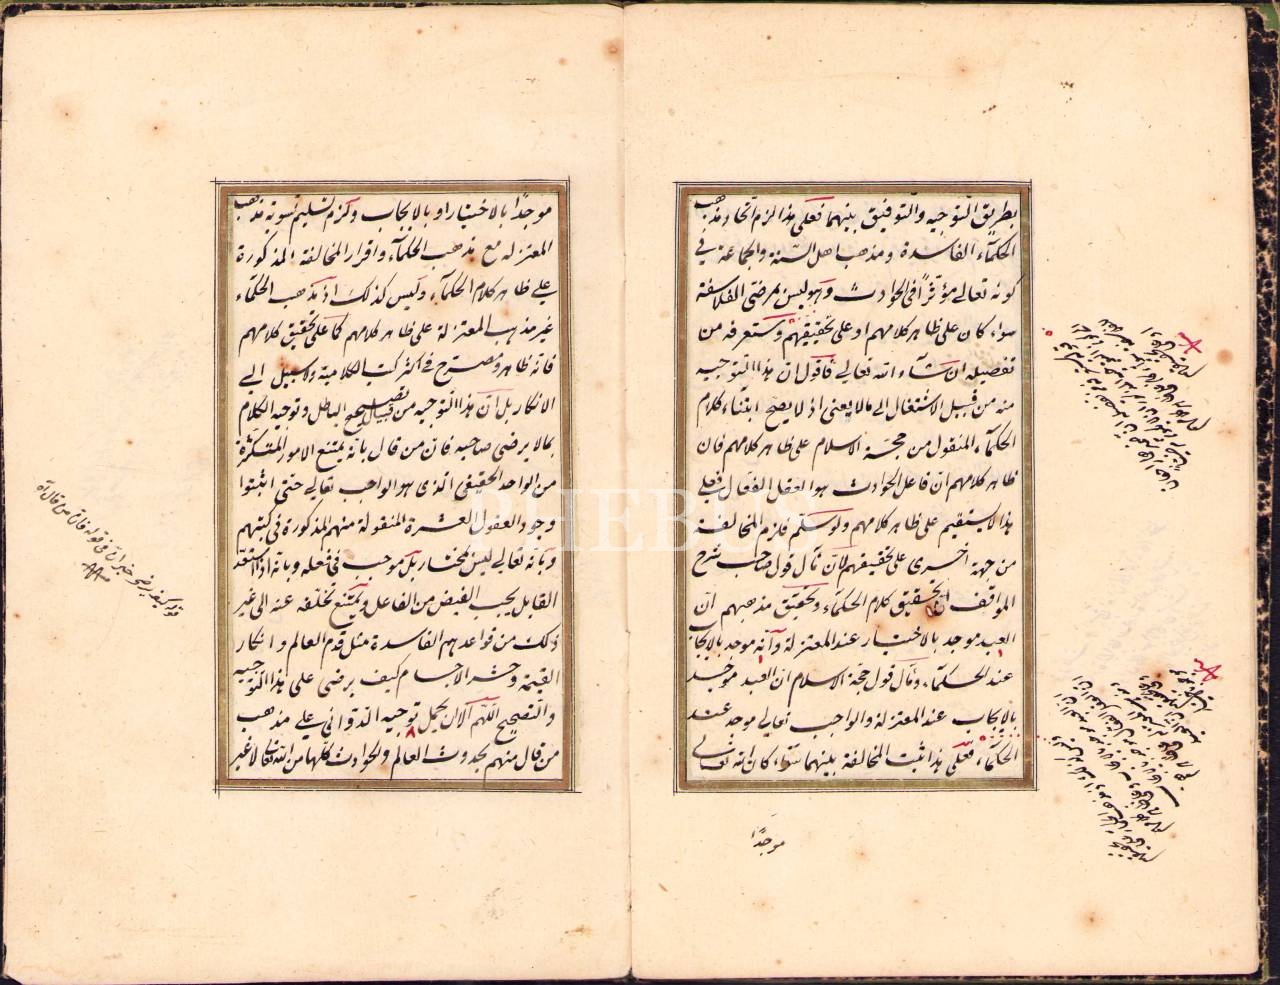 بطريق التوجيه والتوفيق بينهما فعلى هذا لزم اتحاد مذهب
الحكماء الفاسدة ومذهب اهل السنة والجماعة في
كونه تعالى مؤثرا في الحوادث وهو ليس بمرضى الفلاسفة
سواء كان على ظاهر كلامهم او على تحقيقهم وستعرفه من
تفصيله ان شاء الله تعالى فاقول ان هذا التوجيه
منه من قبيل الاشتغال الى مالا يعنى اذ لا يصح ابتناء كلام
الحكماء المنقول من حجة الاسلام على ظاهر كلامهم فان
ظاهر كلامهم ان فاعل الحوادث هو العقل الفعال فعلى
هذا لا يستقيم على ظاهر كلامهم ولو سلم فلزم المخالفة
من جهة اخرى على تحقيقهم لان مآل قول صاحب شرح
المواقف ان تحقيق كلام الحكماء وتحقيق مذهبهم ان
العبد موجد بالاختيار عند المعتزلة وانه موجد بالايجاب
عند الحكماء ومآل قول حجة الاسلام ان العبد موجد
بالايجاب عند المعتزلة والواجب تعالى موجد عند
الحكماء فعلى هذا ثبت المخالفة بينهما سواء كان انه تعالى
موجدا
موجدا بالاختيار او بالايجاب ولزم تسليم تسوية مذهب
المعتزلة مع مذهب الحكماء واقرار المخالفة المذكورة
على ظاهر كلام الحكماء وليس كذلك اذ مذهب الحكماء
غير مذهب المعتزلة على ظاهر كلامهم كما على تحقيق كلامهم
فانه ظاهر ومصرح في اكثر كتب الكلامية ولا سبيل الى
الانكار بل ان هذا التوجيه من قبيل تصحيح الباطل وتوجيه الكلام
بمالا يرضى صاحبه فان من قال بانه يمتنع الامور المتكثرة
من الواحد الحقيقي الذى هو الواجب تعالى حتى اثبتوا
وجود العقول العشرة المنقولة منهم المذكورة في كتبهم
وبانه تعالى ليس بمختار بل موجب في فعله وبانه اذا استعد
القابل يجب الفيض من الفاعل ويمتنع تخلفه عنه الى غير
ذلك من قواعدهم الفاسدة مثل قدم العالم وانكار
القيمة وحشر الاجسام كيف يرضى على هذا التوجيه
والتصحيح اللهم الا ان يحمل توجيه الدوانى على مذهب
من قال منهم بحدوث العالم والحوادث كلها من الله تعالى لا غير
قوله كيف يرضى خبر ان في قوله فان من قال آه
PHEBUS